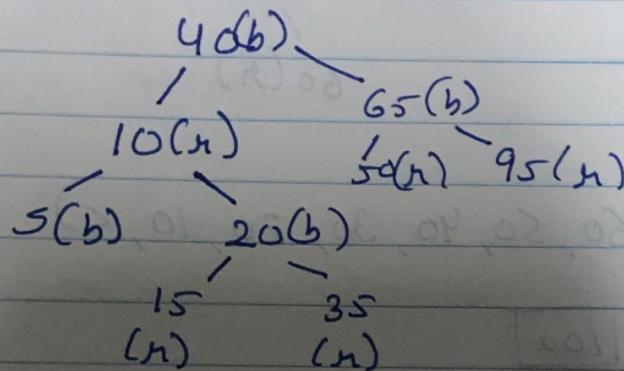 40(b)
10(r) 65(b)
50(r) 95(r)
5(b) 20(b)
15 35
(r) (r)